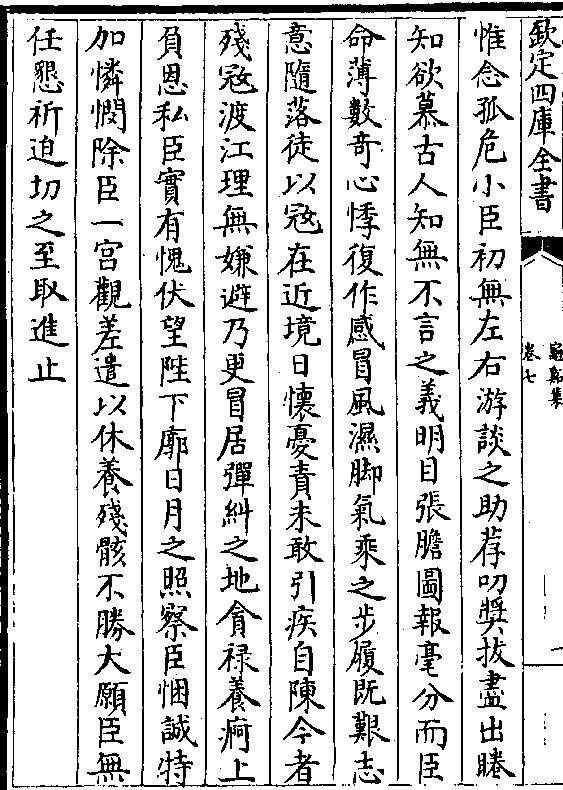 欽定四庫全書
卷七
惟念孤危小臣初無左右游談之助荐叨奬拔盡出睠
知欲慕古人知無不言之義明目張膽圖報毫分而臣
命薄數竒心悸復作感冒風濕脚氣乘之步履既艱志
意隨落徒以宼在近境日懐憂責未敢引疾自陳今者
殘宼渡江理無嫌避乃更冒居彈糾之地貪禄養痾上
負恩私臣實有愧伏望陛下廓日月之照察臣悃誠特
加憐憫除臣一宫觀差遣以休養殘骸不勝大願臣無
任懇祈迫切之至取進止